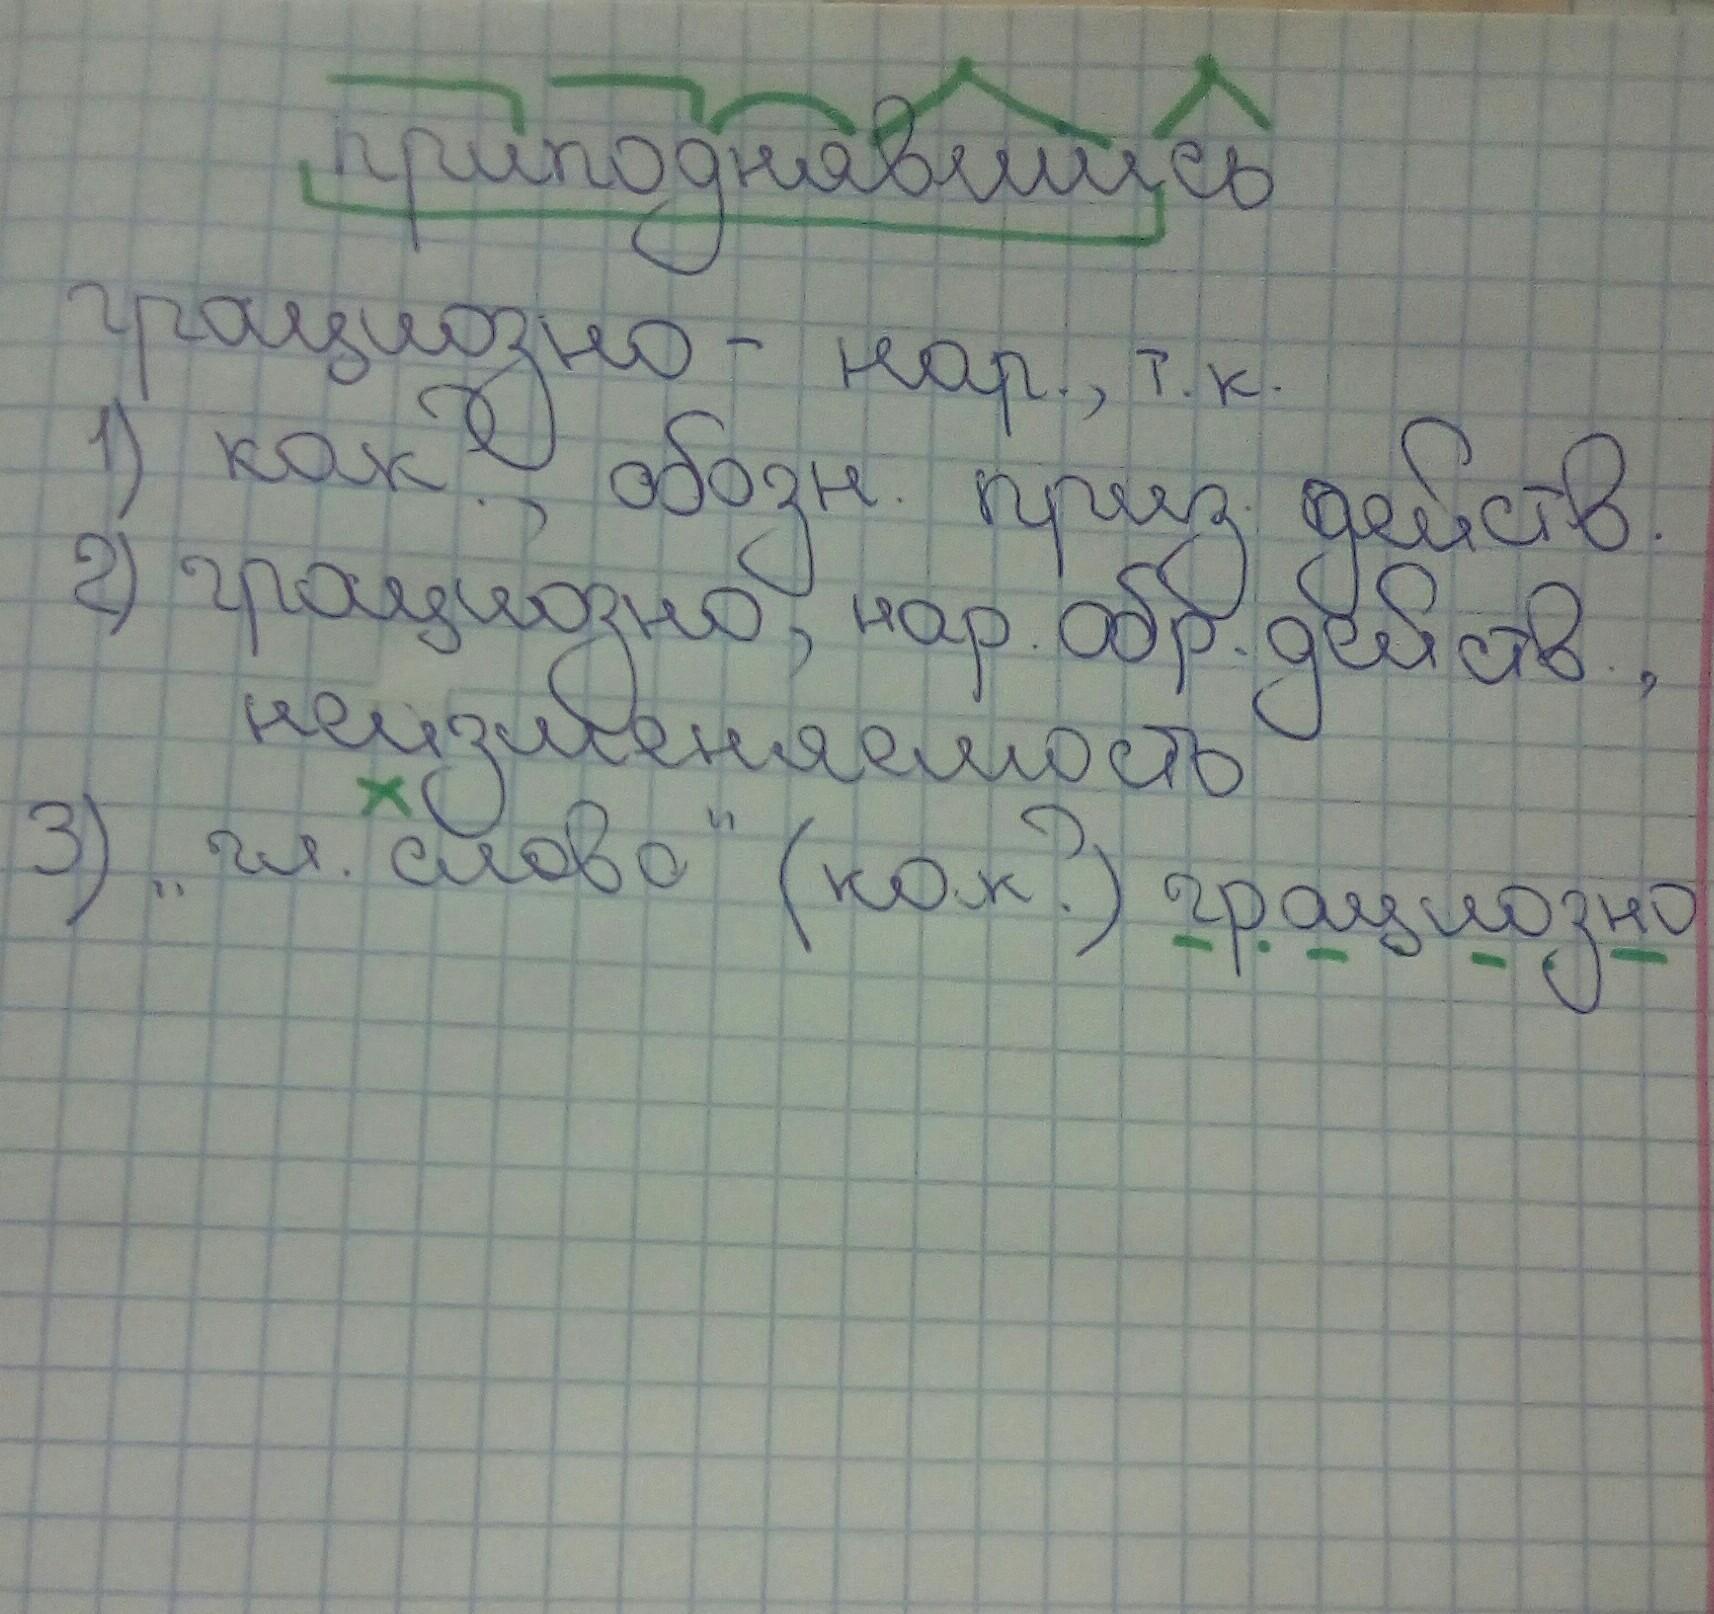 приподнявшись
грациозно - нар., т.к.
1) как?, обозн. приз. действ.
2) грациозно, нар. обр. действ.,
неизменяемость
3) „гл. слово" (как?) грациозно